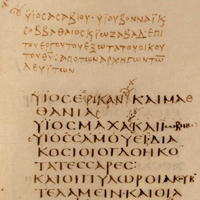 ΥΙΟϹΑϹΑΒΙΟΥ·ΥΙΟΥΒΟΝΝΑΙΚ
ϹΟΒΒΑΘΑΙΟϹΚΙΩΖΑΒΑΔΕΠΙ
ΤΟΥΕΡΓΟΥΤΟΥΕΞΩΤΑΤΟΥΟΙΚΟΥ
ΤΟΥΘΥ·ΑΠΟΤΩΝΑΡΧΗΓΩΝΤΩ
ΛΕΥΙΤΩΝ
ΥΙΟϹΕΡΙΚΑΝΙΚΑΙΜΑ
ΘΑΝΙΑϹ
ΥΙΟϹΜΑΧΑΚΑΙΙ
ΥΙΟϹϹΑΜΟΥΕΙΔΙΑ
ΚΟϹΙΟΙΟΓΔΟΗΚΟ
ΤΑΤΕϹϹΑΡΕϹ:
ΚΑΙΟΙΠΥΛΩΡΟΙΑΚΥΒ
ΤΕΛΑΜΕΙΝΚΑΙΟΙΑ